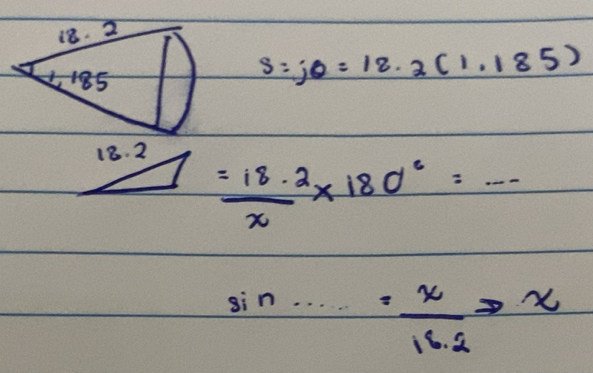 18.2
1.185
s = jθ = 18.2(1.185)
18.2
= 18.2/x × 180° = ...
sin ...... = x/18.2 ⇒ x